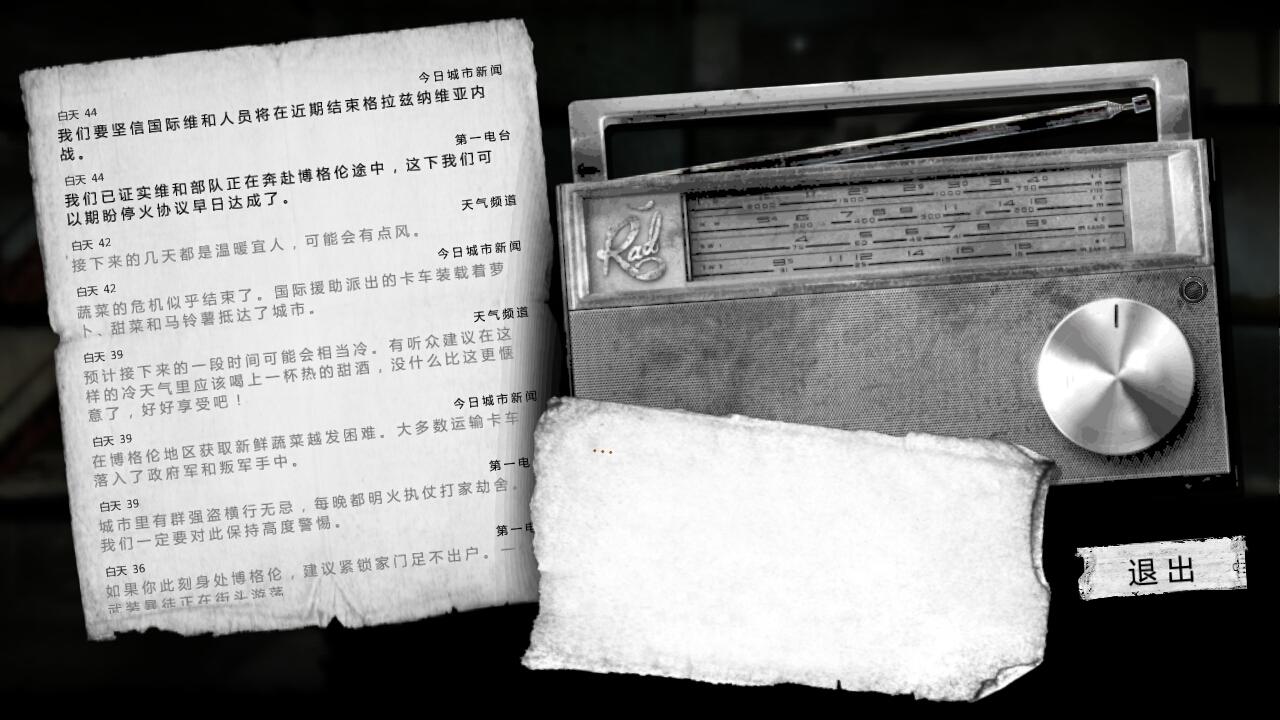 今日城市新闻
白天 44
我们要坚信国际维和人员将在近期结束格拉兹纳维亚内
战。
第一电台
白天 44
我们已证实维和部队正在奔赴博格伦途中，这下我们可
以期盼停火协议早日达成了。
天气频道
白天 42
接下来的几天都是温暖宜人，可能会有点风。
今日城市新闻
白天 42
蔬菜的危机似乎结束了。国际援助派出的卡车装载着萝
卜、甜菜和马铃薯抵达了城市。
天气频道
白天 39
预计接下来的一段时间可能会相当冷。有听众建议在这
样的冷天气里应该喝上一杯热的甜酒，没什么比这更惬
意了，好好享受吧！
今日城市新闻
白天 39
在博格伦地区获取新鲜蔬菜越发困难。大多数运输卡车
落入了政府军和叛军手中。
第一电
白天 39
城市里有群强盗横行无忌，每晚都明火执仗打家劫舍。
我们一定要对此保持高度警惕。
第一电
白天 36
如果你此刻身处博格伦，建议紧锁家门足不出户。一
武装暴徒正在街头游荡
Rad
...
退出